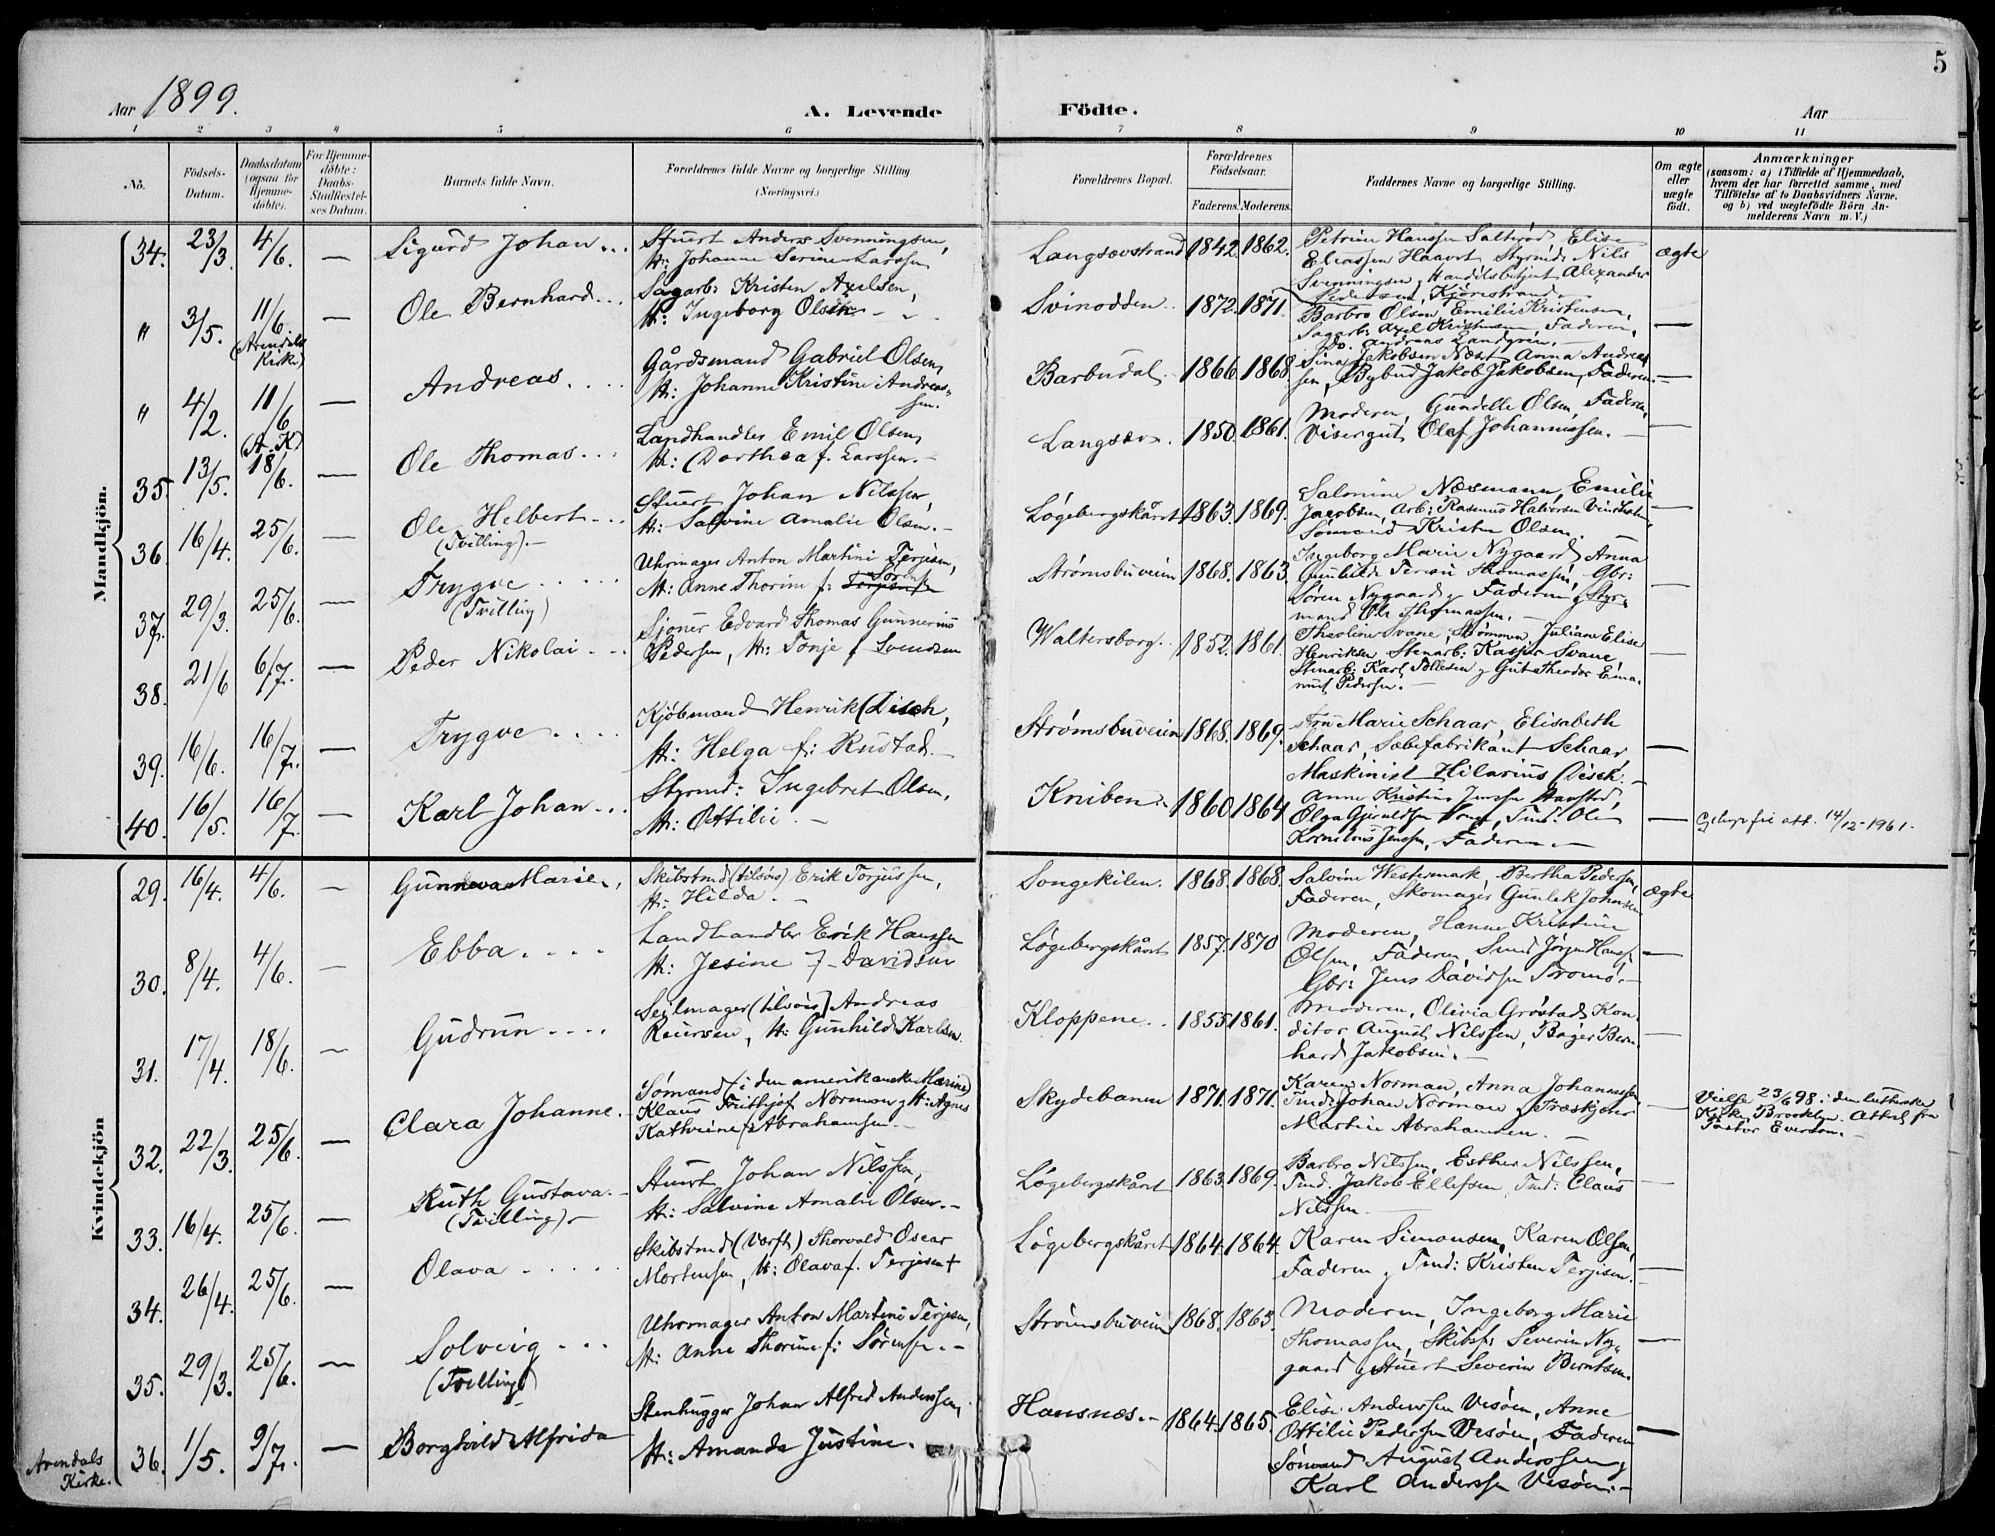 5
Aar 1899.
A. Levende Födte.
Aar
1 2 3 4 5 6 7 8 9 10 11
No.
Födsels-Datum.
Daabsdatum (ogsaa for Hjemmedöbte).
For Hjemmedöbte: Daabs-Stadfestelses Datum.
Barnets fulde Navn.
Forældrenes fulde Navne og borgerlige Stilling (Næringsvei.)
Forældrenes Bopæl.
Forældrenes Födselsaar.
Faderens. Moderens.
Faddernes Navne og borgerlige Stilling.
Om ægte eller uægte födt.
Anmærkninger
(saasom: a) i Tilfælde af Hjemmedaab, hvem der har forrettet samme, med Tilföielse af to Daabsvidners Navne. og b) ved uægtefödte Börn Anmelderens Navn m. V.)
Mandkjön.
34. 23/3. 4/6. — Sigurd Johan... Stuert Anders Svenningsen, H: Johanne Serine Larssen Langsævstrand 1842. 1862. Petrine Hanssen Salterød, Elise Eliassen Haavet, Styrmd: Nils Svenningsen, Handelsbetjent Alexander Pedersen, Kjørestrand ægte
" 3/5. 11/6 (Arendals Kirke) — Ole Bernhard... Sagarb: Kristen Axelsen, H: Ingeborg Olsen - Svinodden. 1872. 1871. Barbro Olsen, Emilie Kristensen, Sagarb: Axel Kristensen, Faderen, do. Andreas Landgren. —
" 4/2. 11/6 (A. K) — Andreas.... Gårdsmand Gabriel Olsen, H: Johanne Kristine Andreassen. Barbudal. 1866. 1868. Sina Jakobsen Næset, Anna Andreassen, Bybud Jakob Jakobsen, Faderen. —
35. 13/5. 18/6. — Ole Thomas... Landhandler Emil Olsen, H: Dorthea f. Larssen. - Langsæv. 1850. 1861. Moderen, Gundelle Olsen, Faderen, Visergut Olaf Johannessen. —
36. 16/4. 25/6. — Ole Helbert... (Tvilling). - Stuert Johan Nilssen, H: Salvine Amalie Olsen. - Løgebergskåret 1863. 1869. Salomine Næsmann, Emilie Jacobsen, Arb: Rasmus Halvorsen Vindholm, Sømand Kristen Olsen. —
37. 29/3. 25/6. — Trygve..... (Tvilling) Uhrmager Anton Martini Terjesen, H: Anne Thorine f: Sørens. Strømsbuveien 1868. 1863. Ingeborg Marie Nygaard, Anna Gunhilde Terese Thomassen, Gbr: Søren Nygaard, Faderen, Styrmand Ole Thomassen. —
38. 21/6 6/7. — Peder Nikolai... Sjömer Edvard Thomas Gunnerius Pedersen, H: Tonje f Svendsen Waltersborg.. 1852. 1861. Theoline Svane, Strømmen, Juliane Elise Henriksen, Stenarb: Kasper Svane, Stenarb: Karl Tollesen & Gut Theodor Emanuel Pedersen. —
39. 16/6. 16/7. — Trygve.... Kjöbmand Henrik Disch, H: Helga f: Rustad — Strømsbuveien 1868. 1869. Fru Marie Schaar, Elisabeth Schaar, Sæbefabrikant Schaar, Maskinist Hilarius Disch. —
40. 16/5. 16/7. — Karl Johan... Styrmd: Ingebret Olsen, H: Ottilie. - Kniben. 1860. 1864 Anne Kristine Jenssen, Olga Gjeruldsen, Tmd: Ole Kornelius Jenssen, Faderen. — att. 14/12-1961.
Kvindekjön
29. 16/4. 4/6. — Gunneva Marie, Skibstmd (tilsøis) Erik Torjussen, H: Hilda. - Songekilen. 1868. 1868. Salvine Westermark, Bertha Pedersen, Faderen, Skomager Gunlek Johnsen ægte
30. 8/4. 4/6. — Ebba.... Landhandler Erik Hanssen H: Jesine f. Davidsen Løgebergskåret 1857. 1870 Moderen, Hanne Kristine Olsen, Faderen, Smed Jörgen Hanss. Gbr: Jens Davidsen Tromö. —
31. 17/4. 18/6. — Gudrun.... Seilmager (tilsøis) Andreas Reiersen, H: Gunhild Karlsen. Kloppene.. 1855 1861. Moderen, Olivia Grøstad, Konditor August Nilssen, Bager Bernhard Jakobsen. —
32. 22/3. 25/6. — Clara Johanne.. Sömand (i den amerikanske Marine) Klaus Frithjof Norman & H: Agnes Kathrine f: Abrahamsen. - Skydebanen 1871. 1871. Karen Norman, Anna Johannessen, Tmd: Johan Norman & Træskjærer Martin Abrahamsen. — Vielse 23/6 98. i den lutherske Kirke Brooklyn. Attest fra Pastor Everson. -
33. 16/4. 25/6. — Ruth Gustava.. (Tvilling) - Stuert Johan Nilssen, H: Salvine Amalie Olsen. - Løgebergskåret 1863. 1869. Barbro Nilssen, Esther Nilssen, Tmd. Jakob Ellefsen, Tmd: Claus Nilssen —
34. 26/4. 25/6. — Olava ..... Skibstmd (Værft) Thorvald Oscar Mortensen, H: Olava f. Terjesen + Løgebergskåret 1864. 1864. Karen Simonsen, Karen Olsen, Faderen & Tmd: Kristen Terjesen. —
35. 29/3. 25/6. — Solveig... (Tvilling) Uhrmager Anton Martini Terjesen, H: Anne Thorine f: Sørensen. - Strømsbuveien 1868. 1863. Moderen, Ingeborg Marie Thomassen, Skibsf: Severin Nygaard & Stuert Severin Berntsen. —
Arendals Kirke. 36. 1/5. 9/7. — Borghild Alfrida Stenhugger Johan Alfred Anderssen, H: Amanda Justine. Hansnæs. - 1864. 1865. Elise Anderssen Vesøen, Anne Ottilie Pedersen Vesøen, Faderen Sömand August Anderssen & Karl Anderssen Vesøen. —